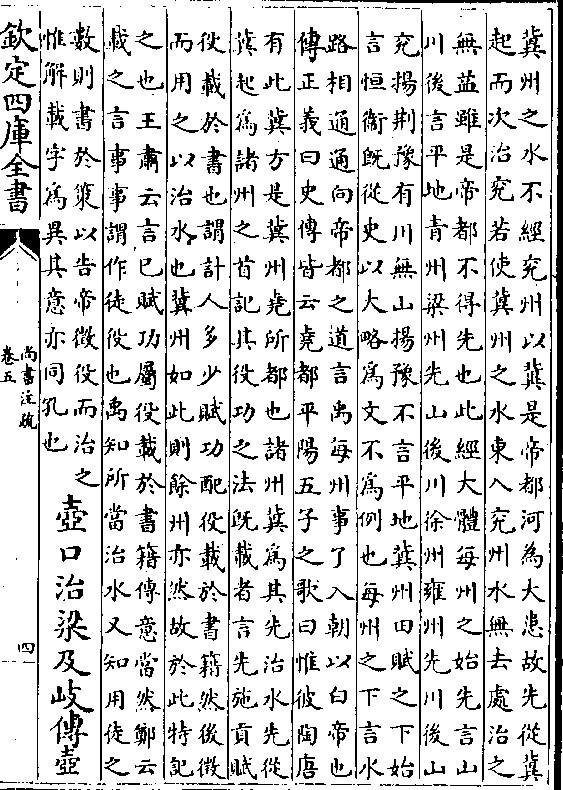 冀州之水不經兖州以冀是帝都河為大患故先從冀
起而次治兖若使冀州之水東入兖州水無去處治之
無益雖是帝都不得先也此經大體每州之始先言山
川後言平地青州梁州先山後川徐州雍州先川後山
兖揚荆豫有川無山揚豫不言平地冀州田賦之下始
言恒衞既從史以大略為文不為例也每州之下言水
路相通通向帝都之道言禹每州事了入朝以白帝也
傳正義曰史傳皆云堯都平陽五子之歌曰惟彼陶唐
有此冀方是冀州堯所都也諸州冀為其先治水先從
冀起為諸州之首記其役功之法既載者言先施貢賦
役載於書也謂計人多少賦功配役載於書籍然後徵
而用之以治水也冀州如此則餘州亦然故於此特記
之也王肅云言已賦功屬役載於書籍傳意當然鄭云
載之言事事謂作徒役也禹知所當治水又知用徒之
數則書於策以告帝徵役而治之
惟解載字為異其意亦同孔也
壺口治梁及岐傳壺
欽定四庫全書
尚書注疏
卷五
四